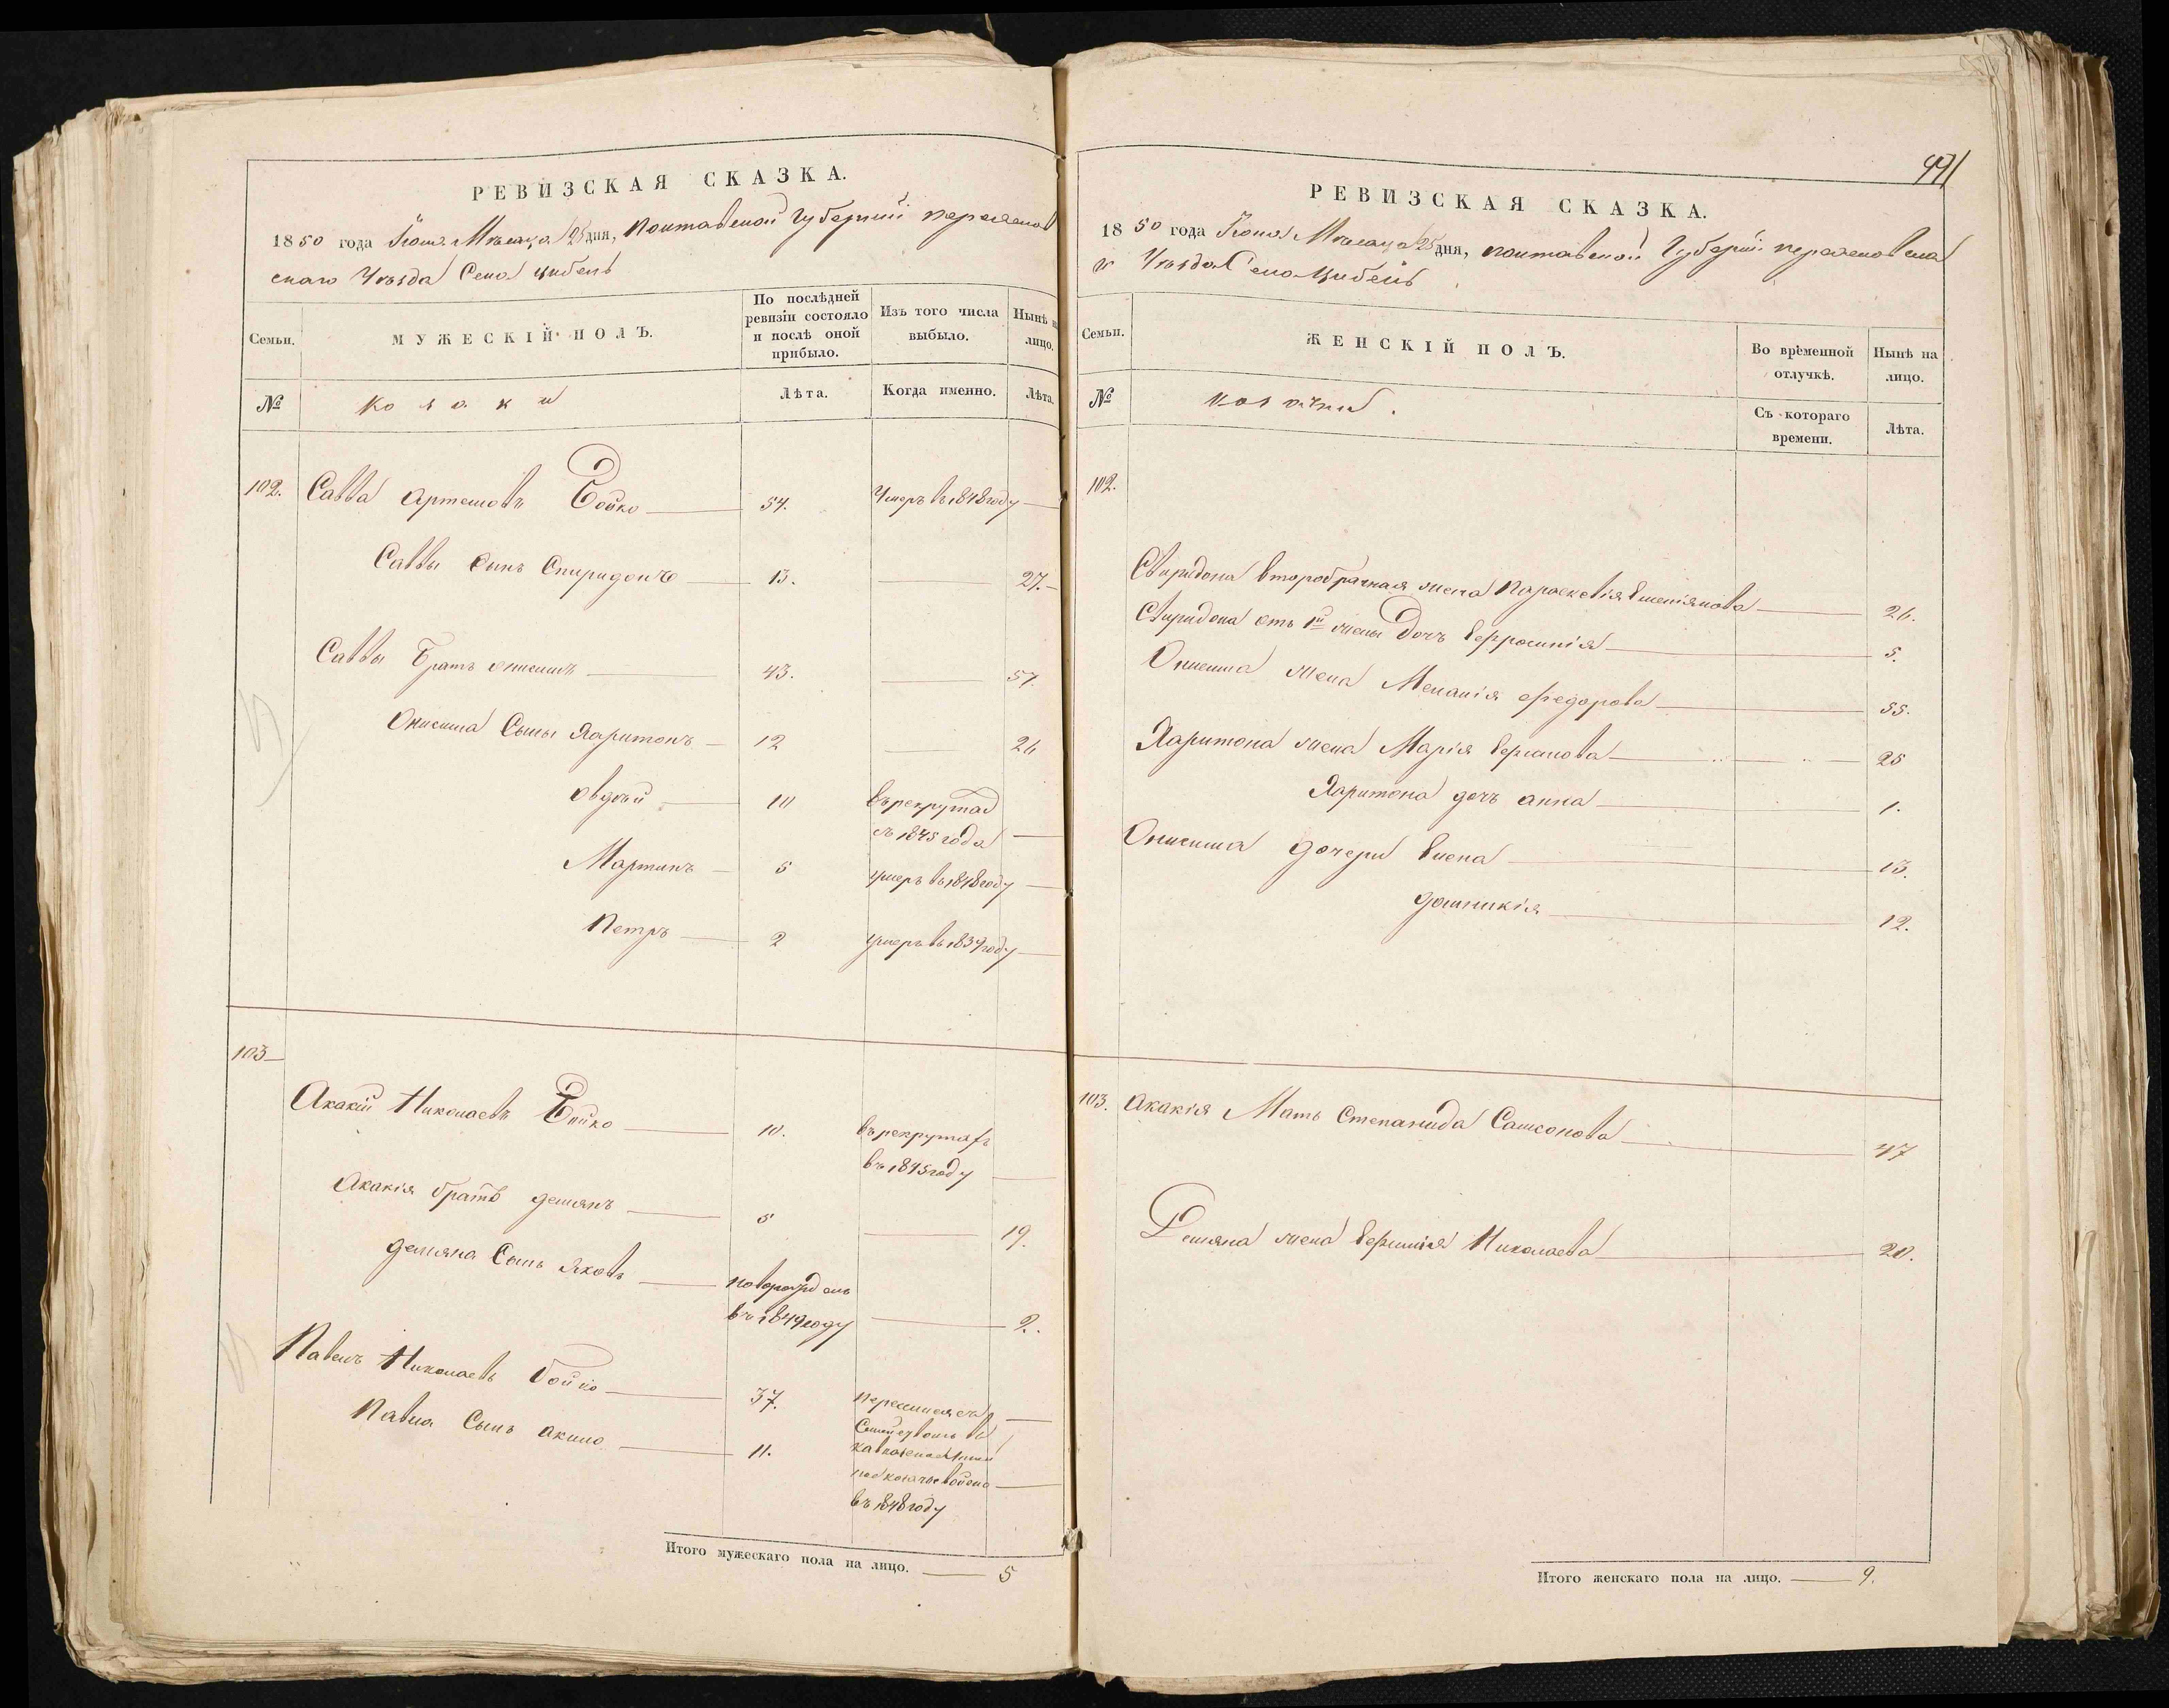 РЕВИЗСКАЯ СКАЗКА.
1850 года Іюня Мѣсяца 25 дня, Полтавской Губерніи Переяслов
скаго Уѣзда Села Цибель
Семьи.
МУЖЕСКІЙ ПОЛЪ.
По послѣдней ревизіи состояло и послѣ оной прибыло.
Изъ того числа выбыло.
Нынѣ на лицо.
№
Козаки
Лѣта.
Когда именно.
Лѣта.
102. Савва Артемовъ Бойко 54. Умеръ въ 1848 году
Саввы Сынъ Спиридонъ 13. 27.
Саввы Братъ Онисимъ 43. 57.
Онисима Сыны Харитонъ 12 26
Овдѣй 10 въ рекрутах
съ 1845 года
Мартинъ 5 умеръ въ 1848 году
Петръ 2 умеръ въ 1839 году
103
Акакій Николаевъ Бойко 10. въ рекрутахъ
въ 1845 году
Акакія братъ Демянъ 5 19.
Демяна Сынъ Яковъ новорожденъ
въ 1849 году 2.
Павелъ Николаевъ Бойко 37. переселился
Семействомъ въ
Павла Сынъ Акимъ 11.
въ 1848 году
Итого мужескаго пола на лицо. 5
491
РЕВИЗСКАЯ СКАЗКА.
1850 года Іюня Мѣсяца 25 дня, Полтавской Губерніи Переясловска
го Уѣзда Села Цибель
Семьи.
ЖЕНСКІЙ ПОЛЪ.
Во временной отлучкѣ.
Нынѣ на лицо.
№
Козачки.
Съ котораго времени.
Лѣта.
102.
Свиридона второбрачная жена Параскевія Емеліянова 26.
Свиридона отъ 1й жены Дочь Ефросинія 5.
Онисима жена Меланія Федорова 55.
Харитона жена Марія Германова 25
Харитона дочь Анна 1.
Онисима дочери Елена 13.
Домникія 12.
103. Акакія Мать Степанида Самсонова 47
Демяна жена Николаева 20.
Итого женскаго пола на лицо. 9.